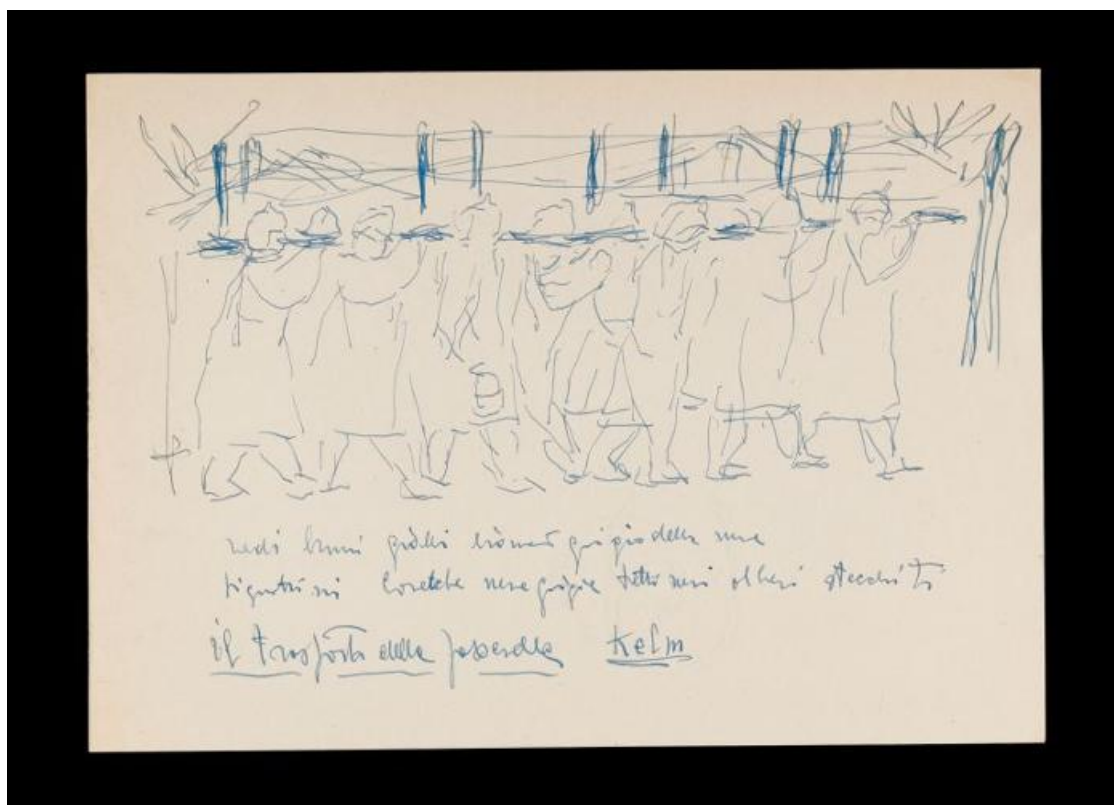 verdi bruni gialli bianco grigio della neve
baracche nere grigie tetti neri alberi stecchiti
il trasporto della passerella Kelm